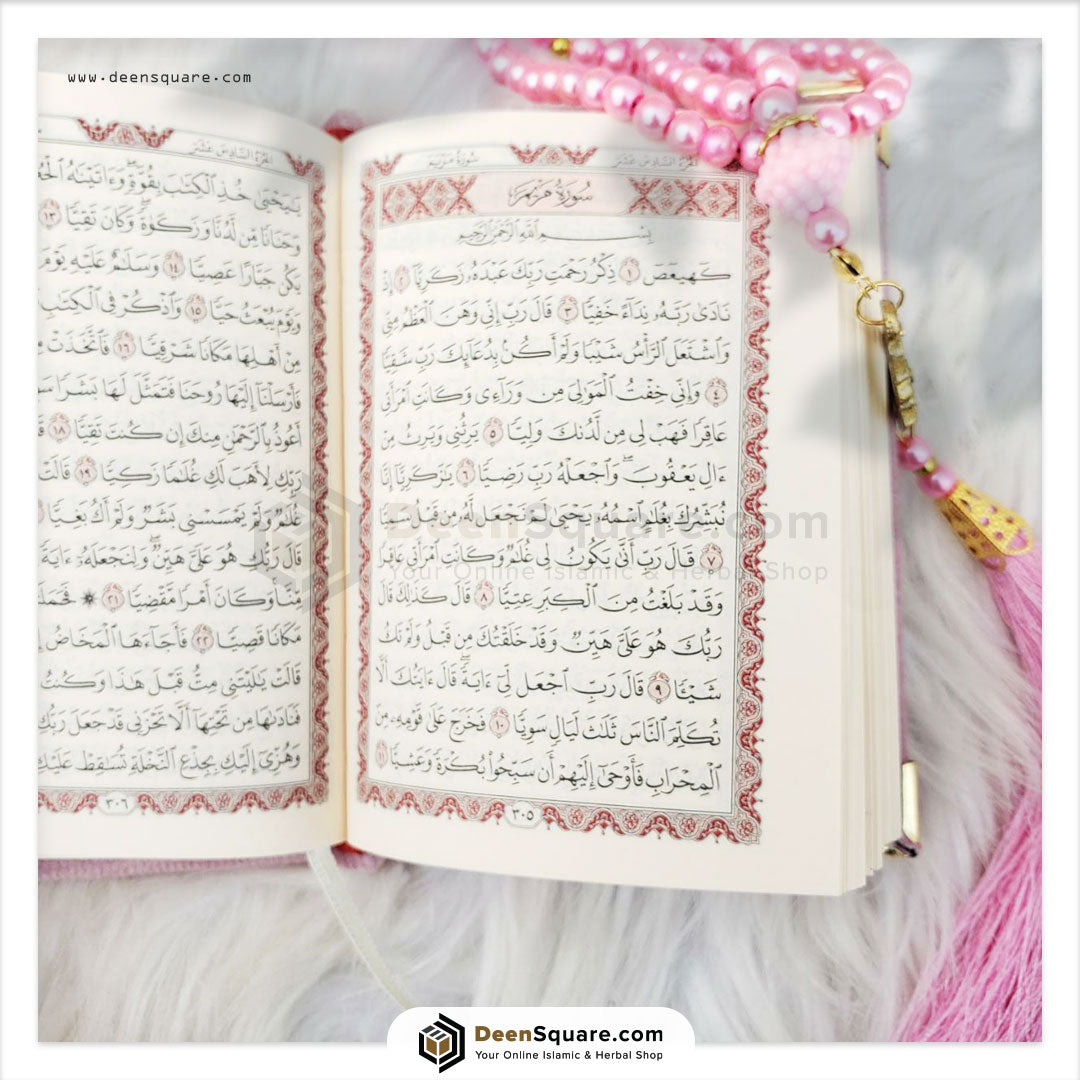 www.deensquare.com
الجزء السادس عشر
سورة مريم
سورة مريم
بسم الله الرحمن الرحيم
كهيعص ١ ذكر رحمت ربك عبده زكريا ٢ إذ
نادى ربه نداء خفيا ٣ قال رب إني وهن العظم مني
واشتعل الرأس شيبا ولم أكن بدعائك رب شقيا
٤ وإني خفت الموالي من وراءي وكانت امرأتي
عاقرا فهب لي من لدنك وليا ٥ يرثني ويرث من
ءال يعقوب واجعله رب رضيا ٦ يزكريا إنا
نبشرك بغلم اسمه يحيى لم نجعل له من قبل سميا
٧ قال رب أنى يكون لي غلم وكانت امرأتي عاقرا
وقد بلغت من الكبر عتيا ٨ قال كذلك قال
ربك هو علي هين وقد خلقتك من قبل ولم تك
شيئا ٩ قال رب اجعل لي ءاية قال ءايتك ألا
تكلم الناس ثلث ليال سويا ١٠ فخرج على قومه من
المحراب فأوحى إليهم أن سبحوا بكرة وعشيا ١١
٣٠٥
الجزء السادس عشر
ييحيى خذ الكتب بقوة وءاتينه
وحنانا من لدنا وزكوة وكان تقيا ١٣
يكن جبارا عصيا ١٤ وسلم عليه يوم
ويوم يبعث حيا ١٥ واذكر في الكتب
من أهلها مكانا شرقيا ١٦ فاتخذت
فأرسلنا إليها روحنا فتمثل لها بشرا
أعوذ بالرحمن منك إن كنت تقيا ١٨
ربك لأهب لك غلما زكيا ١٩ قالت
غلم ولم يمسسني بشر ولم أك بغيا
قال ربك هو علي هين ولنجعله ءاية
منا وكان أمرا مقضيا ٢١
مكانا قصيا ٢٢ فأجاءها المخاض
قالت يليتني مت قبل هذا وكنت
فنادىها من تحتها ألا تحزني قد جعل ربك
وهزي إليك بجذع النخلة تسقط عليك
٣٠٦
DeenSquare.com
Your Online Islamic & Herbal Shop
DeenSquare.com
Your Online Islamic & Herbal Shop